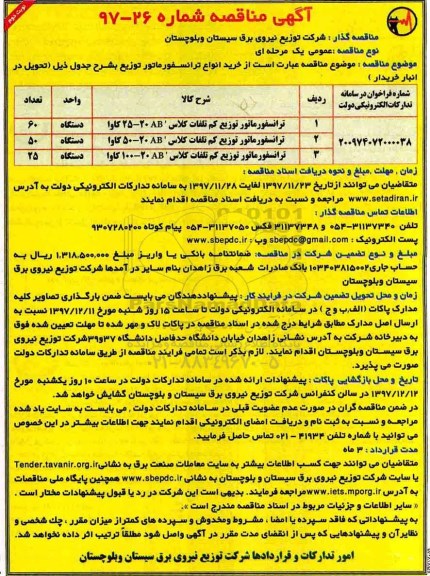 نوبت دوم
آگهی مناقصه شماره ۲۶-۹۷
مناقصه گذار : شرکت توزیع نیروی برق سیستان وبلوچستان
نوع مناقصه :عمومی یک مرحله ای
موضوع مناقصه : موضوع مناقصه عبارت است از خرید انواع ترانسفورماتور توزیع بشرح جدول ذیل (تحویل در
انبار خریدار )
شماره فراخوان در سامانه تدارکات الکترونیکی دولت ردیف شرح کالا واحد تعداد
۲۰۰۹۷۴۰۷۲۰۰۰۰۳۸
۱ ترانسفورماتور توزیع کم تلفات کلاس ' AB ۲۰-۲۵ کاوا دستگاه ۶۰
۲ ترانسفورماتور توزیع کم تلفات کلاس ' AB ۲۰-۵۰ کاوا دستگاه ۵۰
۳ ترانسفورماتور توزیع کم تلفات کلاس ' AB ۲۰-۱۰۰ کاوا دستگاه ۲۵
زمان , مهلت ,مبلغ و نحوه دریافت اسناد مناقصه :
متقاضیان می توانند ازتاریخ ۱۳۹۷/۱۱/۲۳ لغایت ۱۳۹۷/۱۱/۲۸ به سامانه تدارکات الکترونیکی دولت به آدرس
www.setadiran.ir مراجعه و نسبت به دریافت اسناد مناقصه اقدام نمایند
اطلاعات تماس مناقصه گذار :
تلفن ۳۱۱۳۷۳۴۰-۰۵۴ و ۳۱۱۳۷۳۴۸ فکس ۳۱۱۳۷۰۵۰-۰۵۴ پیام کوتاه ۹۳۰۷۲۸۰۲۰۰
پست الکترونیک : sbepdc@gmail.com وب : www.sbepdc.ir
مبلغ و نوع تضمین شرکت در مناقصه: ضمانتنامه بانکی یا واریز مبلغ ۱.۳۱۸.۵۰۰.۰۰۰ ریال به
حساب جاری۰۱۰۳۴۰۳۸۱۵۰۰۲ بانک صادرات شعبه برق زاهدان بنام سایر در آمدها شرکت توزیع نیروی برق
سیستان وبلوچستان
زمان و محل تحویل تضمین شرکت در فرایند کار : پیشنهاددهندگان می بایست ضمن بارگذاری تصاویر کلیه
مدارک پاکات (الف،ب و ج ) در سامانه الکترونیکی دولت تا ساعت ۱۵ روز شنبه مورخ ۱۳۹۷/۱۲/۱۱ نسبت به
ارسال اصل مدارک مطابق شرایط درج شده در اسناد مناقصه در پاکات لاک و مهر شده تا مهلت تعیین شده فوق
به دبیرخانه شرکت به آدرس نشانی زاهدان خیابان دانشگاه حدفاصل دانشگاه ۳۷و۳۹شرکت توزیع نیروی
برق سیستان وبلوچستان اقدام نمایند. لازم بذکر است تمامی فرایند مناقصه از طریق سامانه تدارکات دولت
صورت می پذیرد.
تاریخ و محل بازگشایی پاکات : پیشنهادات ارائه شده در سامانه تدارکات دولت در ساعت ۱۰ روز یکشنبه مورخ
۱۳۹۷/۱۲/۱۲ در سالن کنفرانس شرکت توزیع نیروی برق سیستان و بلوچستان گشایش خواهد شد.
در ضمن مناقصه گران در صورت عدم عضویت قبلی در سامانه تدارکات دولت , می بایست به سایت یاد شده
مراجعه و نسبت به ثبت نام و دریافت امضای الکترونیکی اقدام نمایند جهت اطلاعات بیشتر در این خصوص
می توانید با شماره تلفن ۴۱۹۳۴ - ۰۲۱ تماس حاصل فرمایید.
مدت قرارداد : ۳ ماه
متقاضیان می توانند جهت کسب اطلاعات بیشتر به سایت معاملات صنعت برق به نشانیTender.tavanir.org.ir
یا سایت شرکت توزیع نیروی برق سیستان و بلوچستان به نشانی www.sbepdc.ir همچنین پایگاه ملی مناقصات
به آدرس www.iets.mporg.ir مراجعه فرمایند. بدیهی است این شرکت در رد یا قبول پیشنهادات مختار است .
« سایر اطلاعات و جزئیات مربوط در اسناد مناقصه مندرج است ».
به پیشنهاداتی که فاقد سپرده یا امضا , مشروط ومخدوش و سپرده های کمتراز میزان مقرر , چک شخصی و
نظایرآن و پیشنهادهایی که پس از انقضای مدت مقرر در آگهی واصل شود مطلقاً ترتیب اثر داده نخواهد شد.
امور تدارکات و قراردادها شرکت توزیع نیروی برق سیستان وبلوچستان